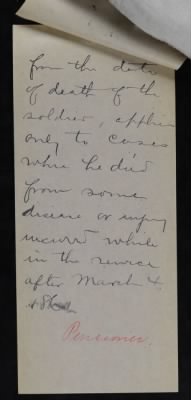 from the date
of death of the
soldier, applies
only to cases
where he died
from some
disease or injury
incurred while
in the service
after March 4,
Pensioner.